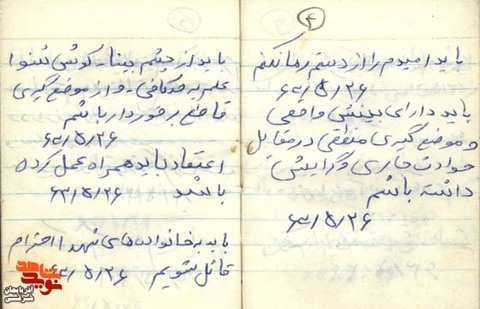 ۴
باید امیدم را از دستم رها نکنم
۶۳/۵/۲۶
باید دارای بینش واقعی
و موضع گیری منطقی در مقابل
حوادث جاری و گرایش
داشته باشم
۶۳/۵/۲۶
باید از چشم بینا - گوش شنوا
علم به حد کافی - و از موضع گیری
قاطع برخوردار باشم
۶۳/۵/۲۶
اعتقاد باید همراه عمل کرده
باشد ۶۳/۵/۲۶
باید به خانواده های شهدا احترام
قائل شویم ۶۳/۵/۲۶
نوید شاهد
آذربایجان شرقی